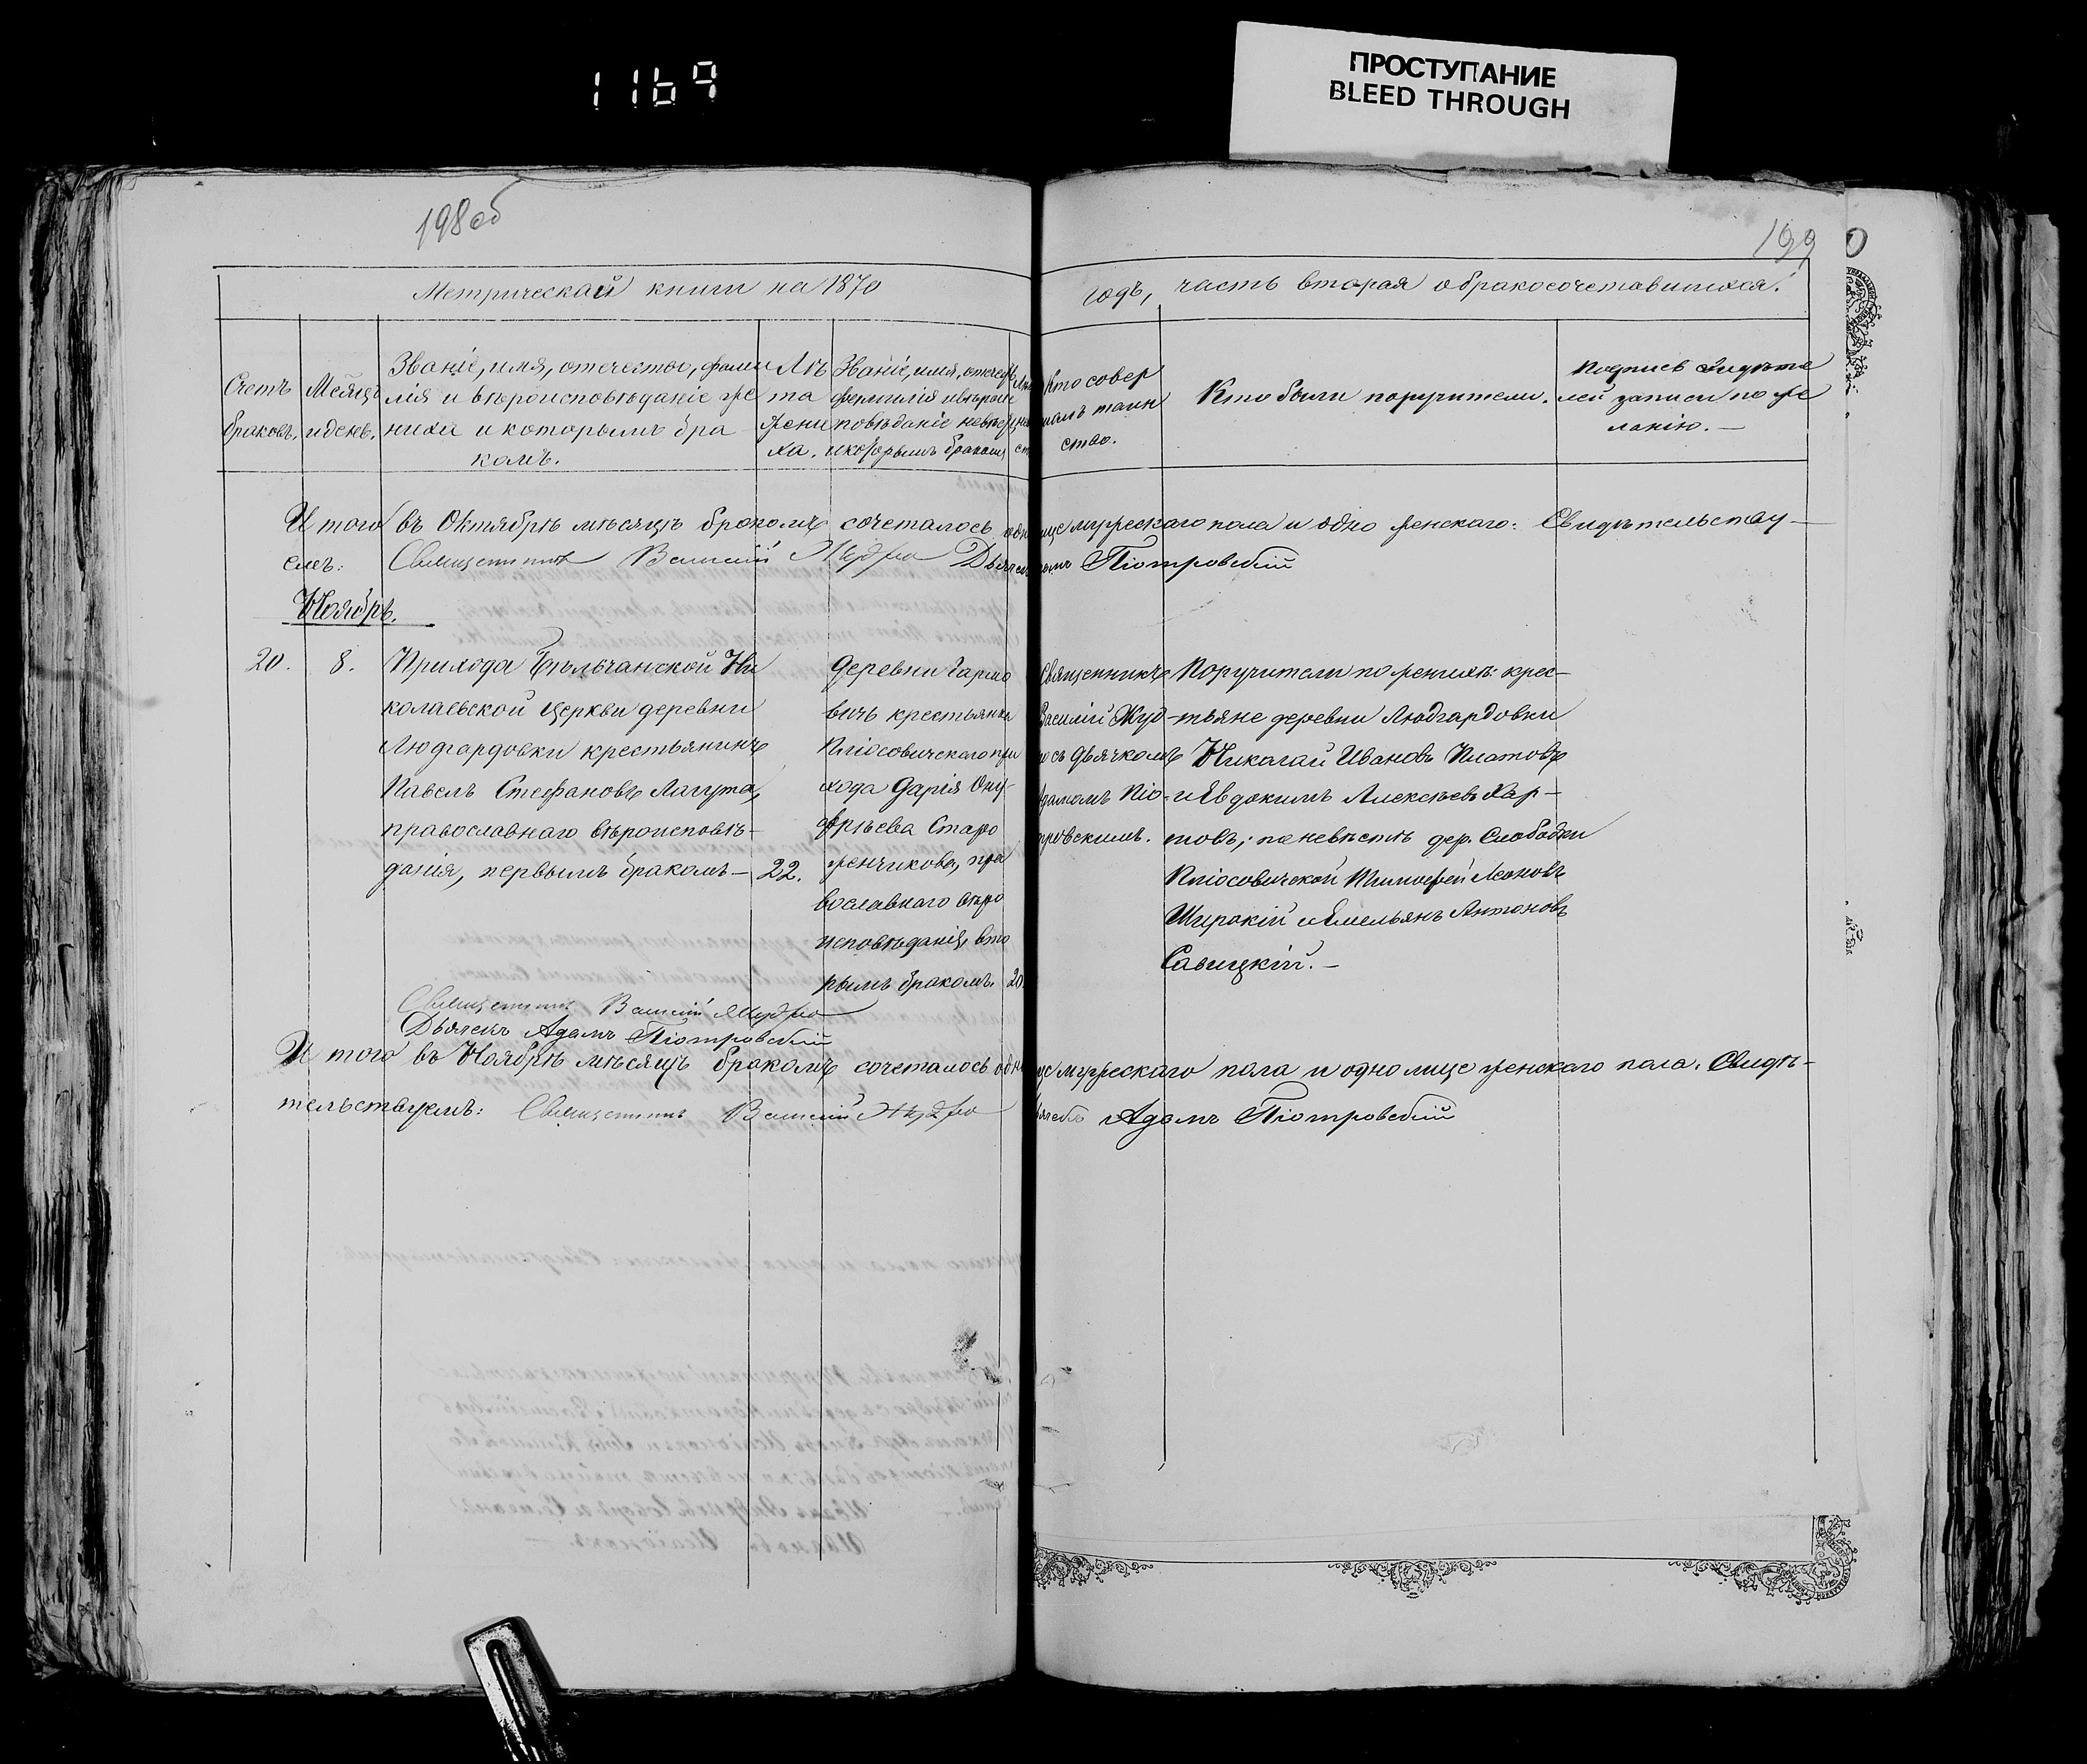 1169
ПРОСТУПАНИЕ
BLEED THROUGH
198об
199
Метрической книги на 1870
годъ, часть вторая о бракосочетавшихся.
Счетъ
браковъ.
Месяцъ
и день.
Званіе, имя, отечество, фами
лія и вѣроисповѣданіе же
ниха и которымъ бра
комъ.
Лѣ
та
жени
ха.
Званіе, имя, отечес
фамилія и вѣрои
повѣданіе невѣс
и которымъ бракомъ
Кто совер
шалъ таин
ство.
Кто были поручители.
Подпись свидѣте
лей записи по же
ланію.
Итого въ Октябрѣ мѣсяцѣ бракомъ сочеталось одн
ице мужескаго пола и одно женскаго: Свидѣтельству
емъ: Священникъ Василій Жудро Дьячек
Адамъ Піотровскій
Ноябрь.
20. 8.
Прихода Бѣльчанской Ни
колаевской церкви деревни
Людгардовки крестьянинъ
Павелъ Стефановъ Лагута,
православнаго вѣроисповѣ-
данія, первымъ бракомъ— 22.
деревни Гармо
вичь крестьянка
Кліосовичскаго при
хода Дарія Ону-
фріева Старо
женчикова, пра
вославнаго вѣро
исповѣданія, вто
рымъ бракомъ. 20.
Священникъ
Василій Жуд-
ро съ дьячкомъ
Адамомъ Піо-
тровскимъ.
Поручители по женихѣ: крес-
тьяне деревни Людгардовки
Никалай Ивановъ Платовъ
и Евдокимъ Алексѣевъ Хар-
товъ; по невѣстѣ дер. Слободки
Кліосовичской Тимофей Леоновъ
Широкій и Емельянъ Антоновъ
Савицкій.—
Священникъ Василій Жудро
Дьячекъ Адамъ Піотровскій
Итого въ Ноябрѣ мѣсяцѣ бракомъ сочеталось одн
це мужескаго пола и одно лице женскаго пола. Свидѣ-
тельствуемъ: Священникъ Василій Жудро
Дьячекъ Адамъ Піотровскій